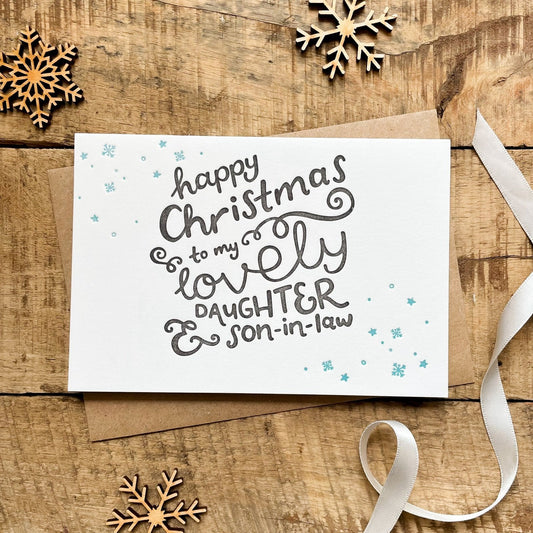 happy
Christmas
to my
lovely
DAUGHTER
& son-in-law